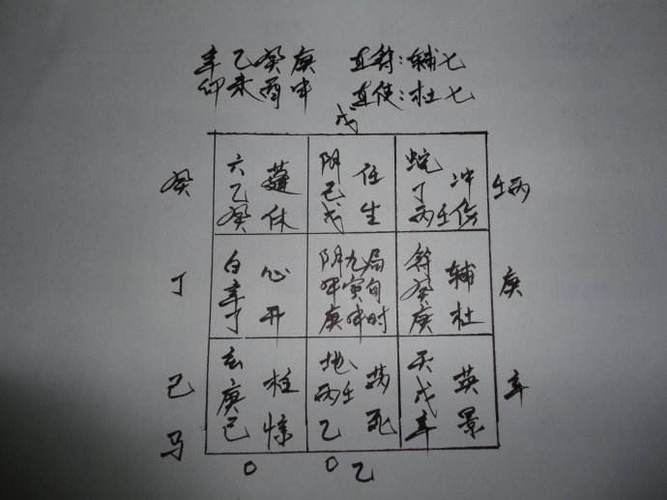 辛乙癸庚 直符:辅七
卯未酉申 直使:杜七
戊
六 蓬 阴 任 蛇 冲
癸 乙 己 丁 壬丙
癸 休 戊 生 丙壬 伤
白 心 阴九局 符 辅
丁 辛 甲寅旬 癸 庚
丁 开 庚申时 庚 杜
玄 柱 地 芮 天 英
己 庚 丙壬 戊 辛
己 惊 乙 死 辛 景
马
O O 乙